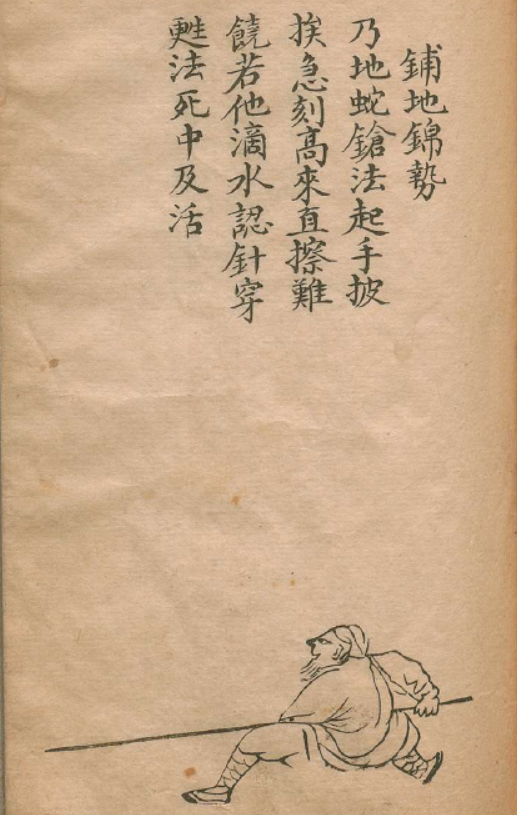 鋪地錦勢
乃地蛇鎗法起手披
挨急刻高來直擦難
饒若他滴水認針穿
甦法死中及活